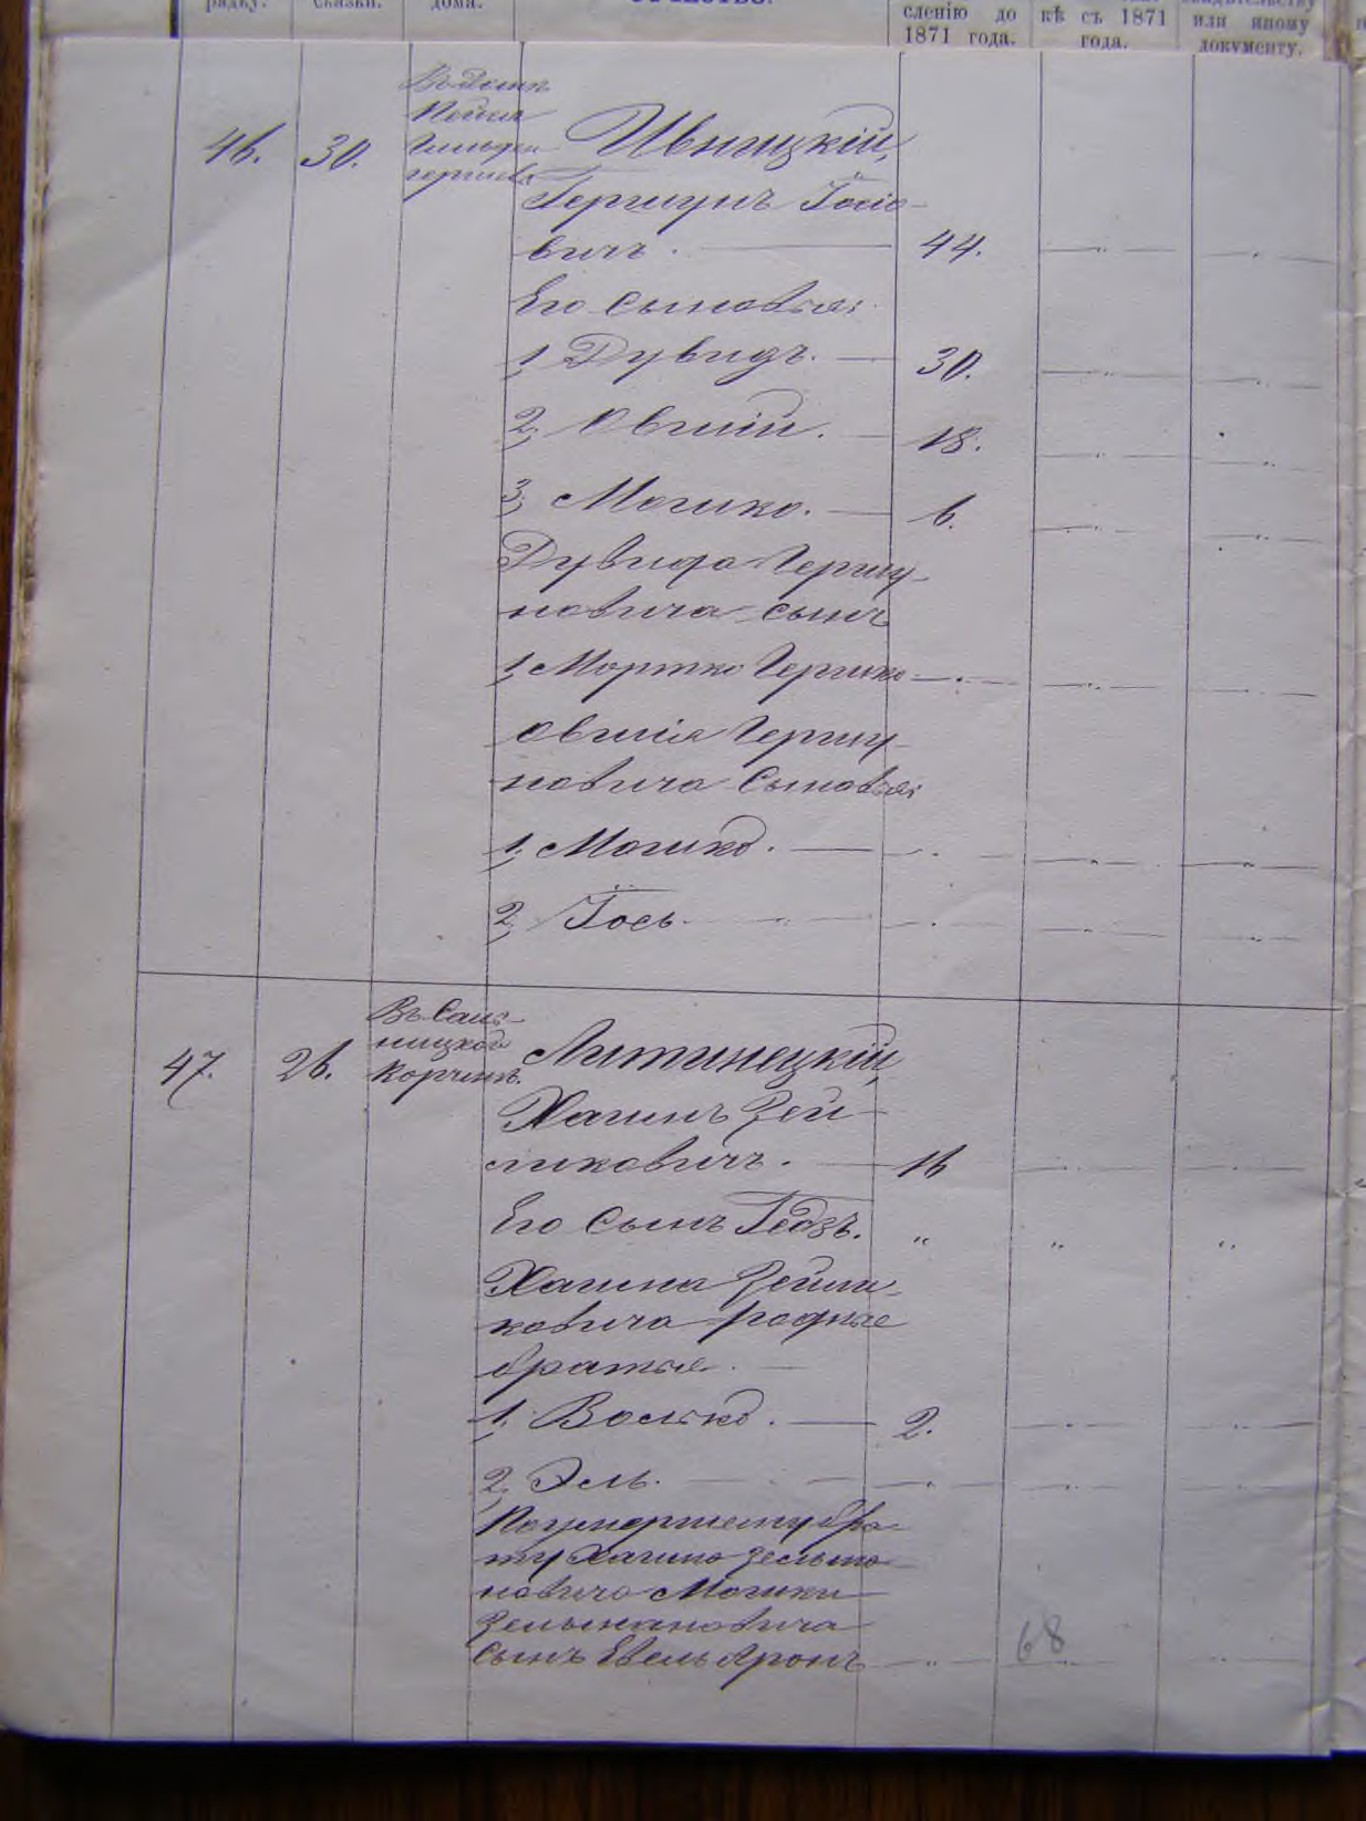 рядку.
сказки.
дома.
сленію до
1871 года.
кѣ съ 1871
года.
или иному
документу.
46.
30.
Въ домѣ
Ивницкій,
Гершунъ Іосіо-
вичъ. 44.
Его сыновья:
1, Дувидъ. 30.
2, Овшій. 18.
3, Мошко. 6.
Дувида Гершу-
новича сынъ
1, Мортко Гершко
Овшія Гершу-
новича Сыновья:
1, Мошко.
2, Іось.
47.
26.
корчмѣ.
Литинецкій,
Хаимъ Зей-
ликовичъ. 16
Его Сынъ Гедзъ.
Хаима Зейли-
ковича родные
братья.
1, Волько. 2.
2, Эль.
По умершему бра-
ту Хаима Зельма-
новича Мошки
Зельмановича
Сынъ Евель Аронъ
68